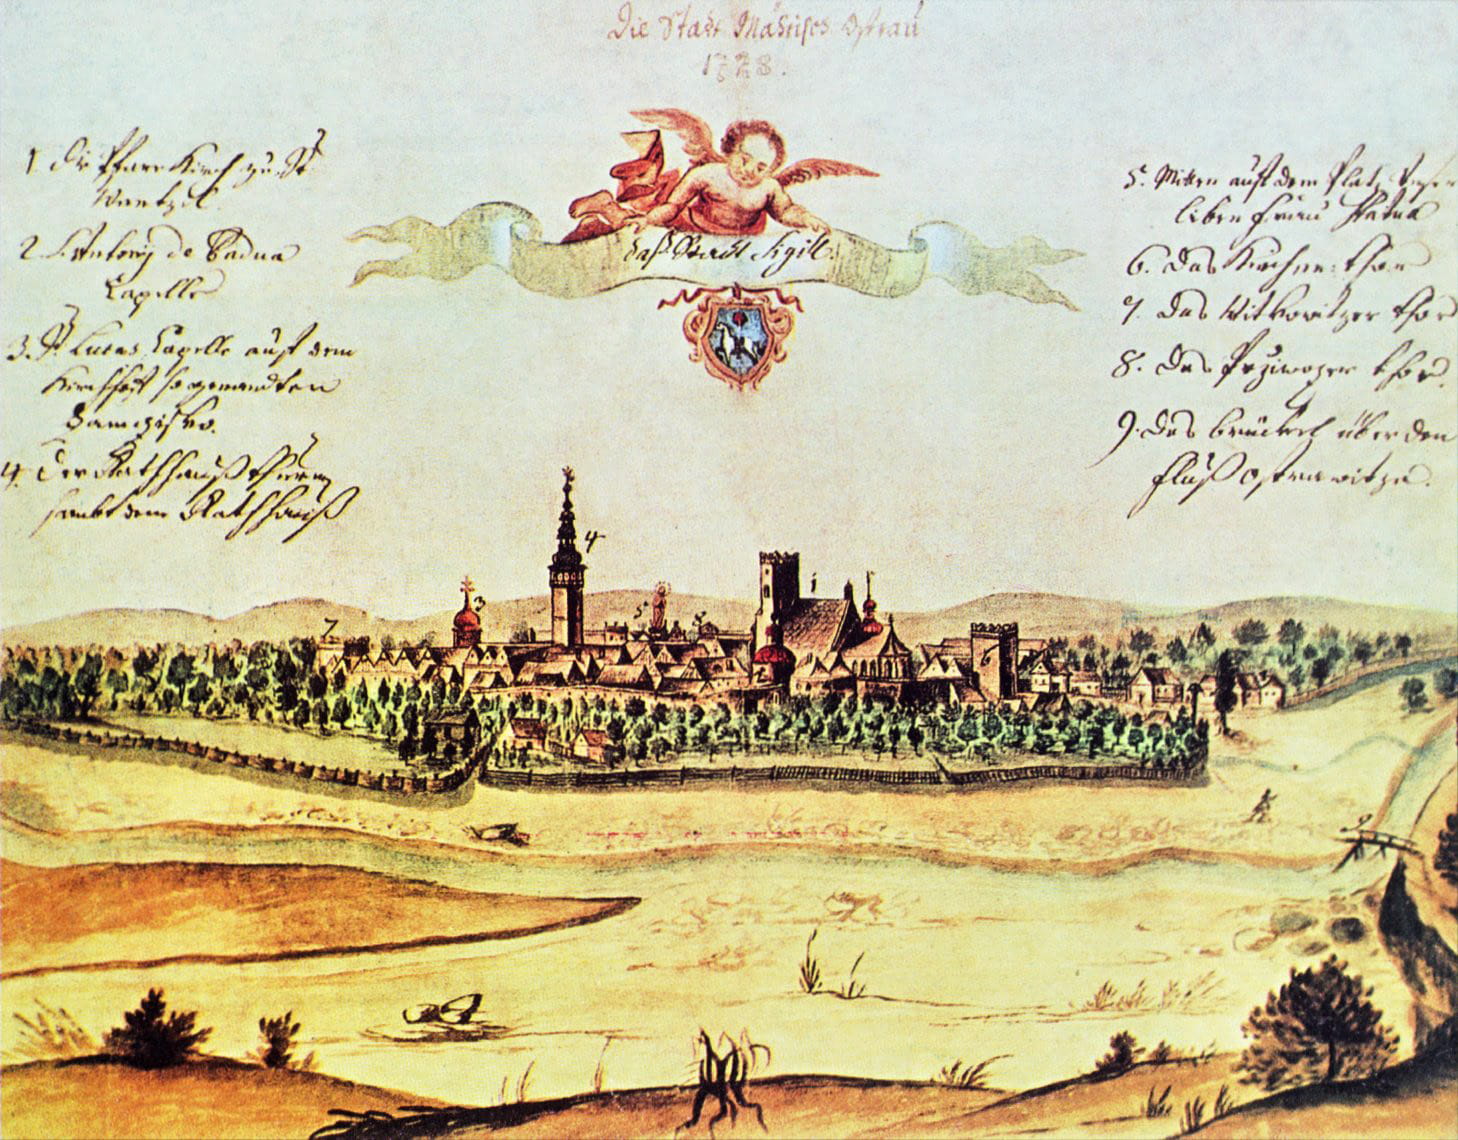 Die Stadt Mährisch Ostrau
1728.
1 Die Pfarr Kirch zu St.
Wentzl.
2 S. Antony de Padua
Capelle
3. St. Lucas Capelle auf dem
Kirchhof so genandten
4. Der Rathhauß Thurm
sambt dem Rathhauß
das Stadt Sigill.
5. Mitten auf dem Platz Unser
liben Frau Statua
6. Das Kirchen thor
7. Das Witkowitzer thor
8. Das Prziwozer thor.
9. Das brückel über den
fluß Ostrawitza.
4
3
7
5
1
2
9